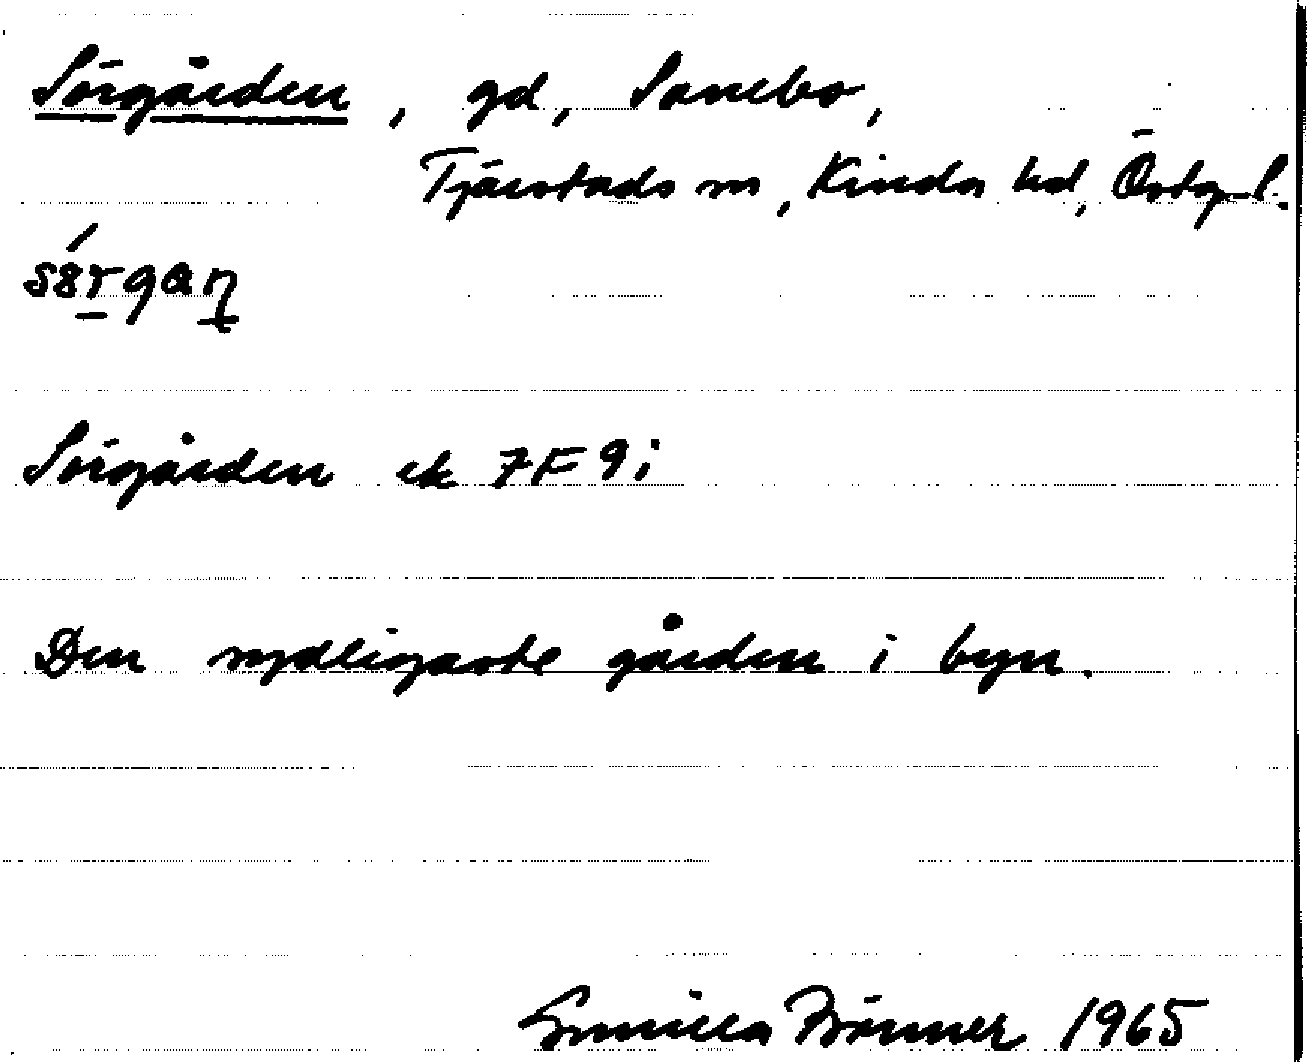 Sörgården, gd, Sonebo,
Tjärstads sn, Kinda hd, Östg. l.
Sörgården ek 7F 9i
Den sydligaste gården i byn.
Gunilla 1965